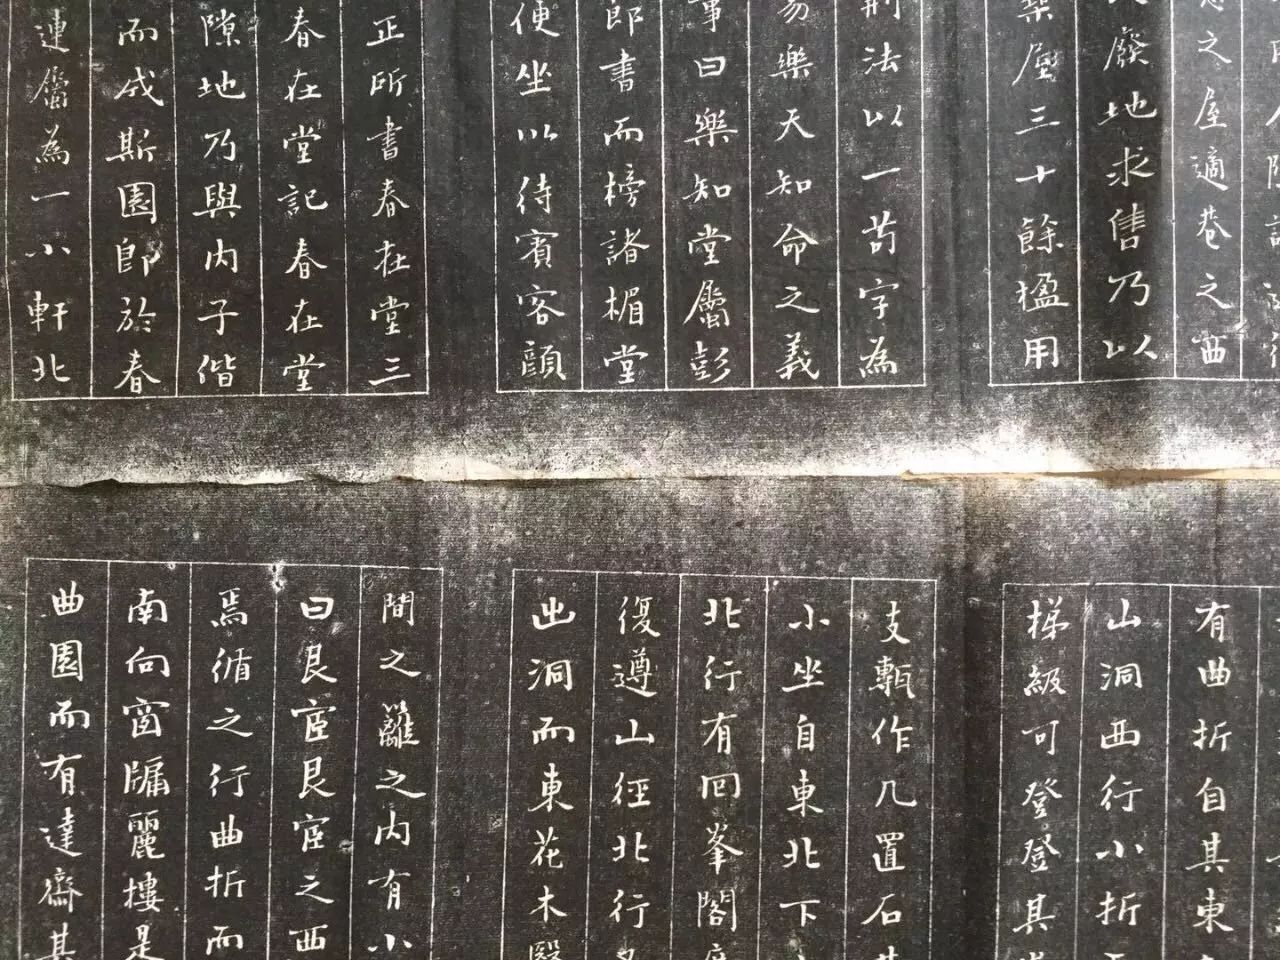 之屋適巷之西
廢地求售乃以
築屋三十餘楹用
法以一苟字為
易樂天知命之義
事曰樂知堂屬彭
郎書而榜諸楣堂
便坐以待賓客顏
正所書春在堂三
春在堂記春在堂
隙地乃與內子偕
而成斯園即於春
連屬為一小軒北
有曲折自其東
山洞西行小折
梯級可登登其
支甎作几置石
小坐自東北下
北行有回峯閣
復遵山徑北行
出洞而東花木翳
間之籬之內有小
曰艮宧艮宧之西
焉循之行曲折而
南向窗牖麗摟是
曲園而有達齋其